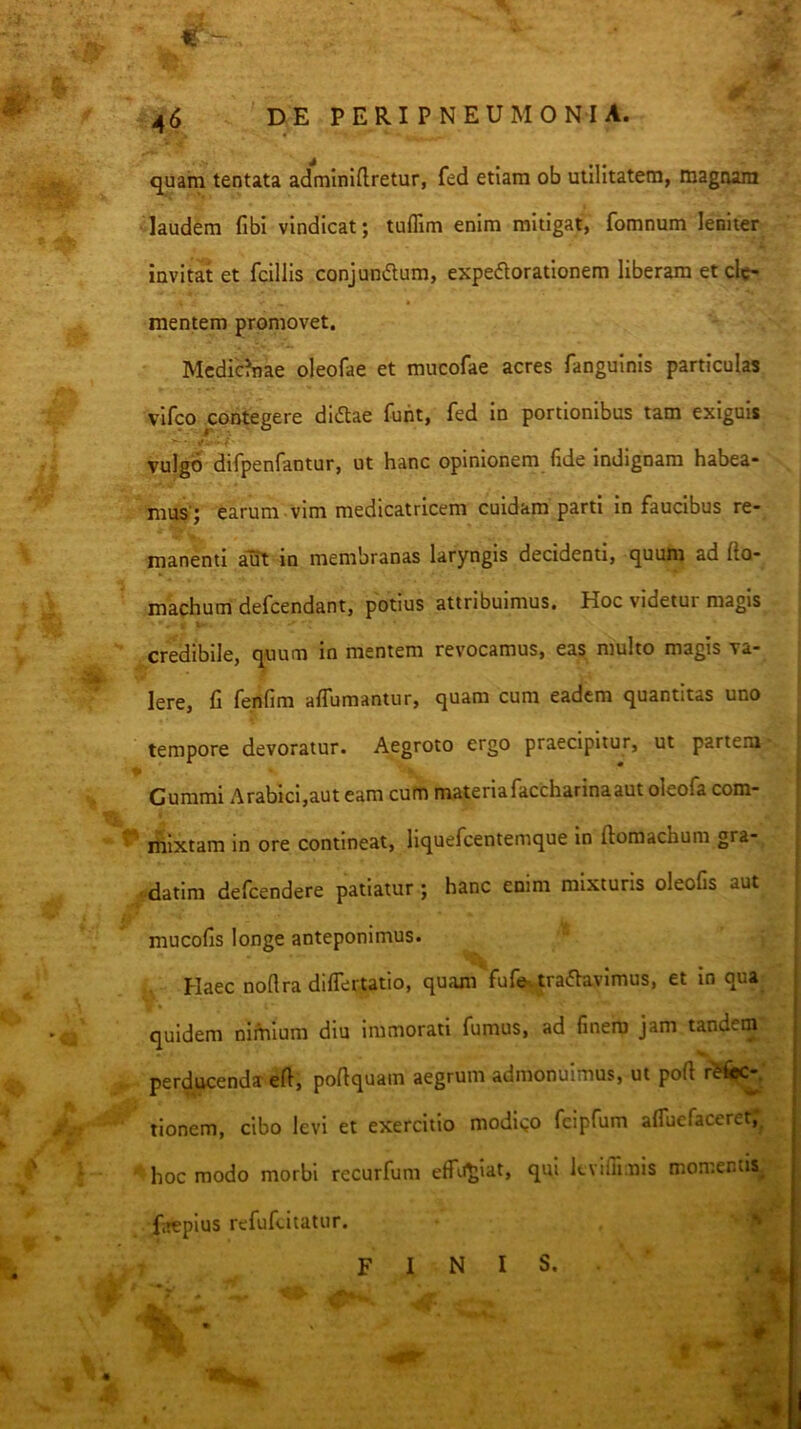 46 DE PERIPNEUMONIA.
quam tentata adminiſtretur, ſed etiam ob utilitatem, magnam
laudem ſibi vindicat; tuſſim enim mitigat, ſomnum leniter
invitat et ſcillis conjunctum, expectorationem liberam et cle-
mentem promovet.
Medicinae oleoſae et mucoſae acres ſanguinis particulas
viſco contegere dictae ſunt, ſed in portionibus tam exiguis
vulgo diſpenſantur, ut hanc opinionem fide indignam habea-
mus; earum vim medicatricem cuidam parti in faucibus re-
manenti aut in membranas laryngis decidenti, quum ad ſto-
machum deſcendant, potius attribuimus. Hoc videtur magis
credibile, quum in mentem revocamus, eas multo magis va-
lere, ſi ſenſim aſſumantur, quam cum eadem quantitas uno
tempore devoratur. Aegroto ergo praecipitur, ut partem
Gummi Arabici, aut eam cum materia ſaccharina aut oleoſa com-
mixtam in ore contineat, liqueſcentemque in ſtomachum gra-
datim deſcendere patiatur; hanc enim mixturis oleoſis aut
mucoſis longe anteponimus.
Haec noſtra diſſertatio, quam fuſe tractavimus, et in qua
quidem nimium diu immorati ſumus, ad finem jam tandem
perducenda eſt, poſtquam aegrum admonuimus, ut poſt refec-
tionem, cibo levi et exercitio modico ſeipſum aſſuefaceret,
hoc modo morbi recurſum effugiat, qui leviſſimis momentis
ſaepius reſuſcitatur.
FINIS.